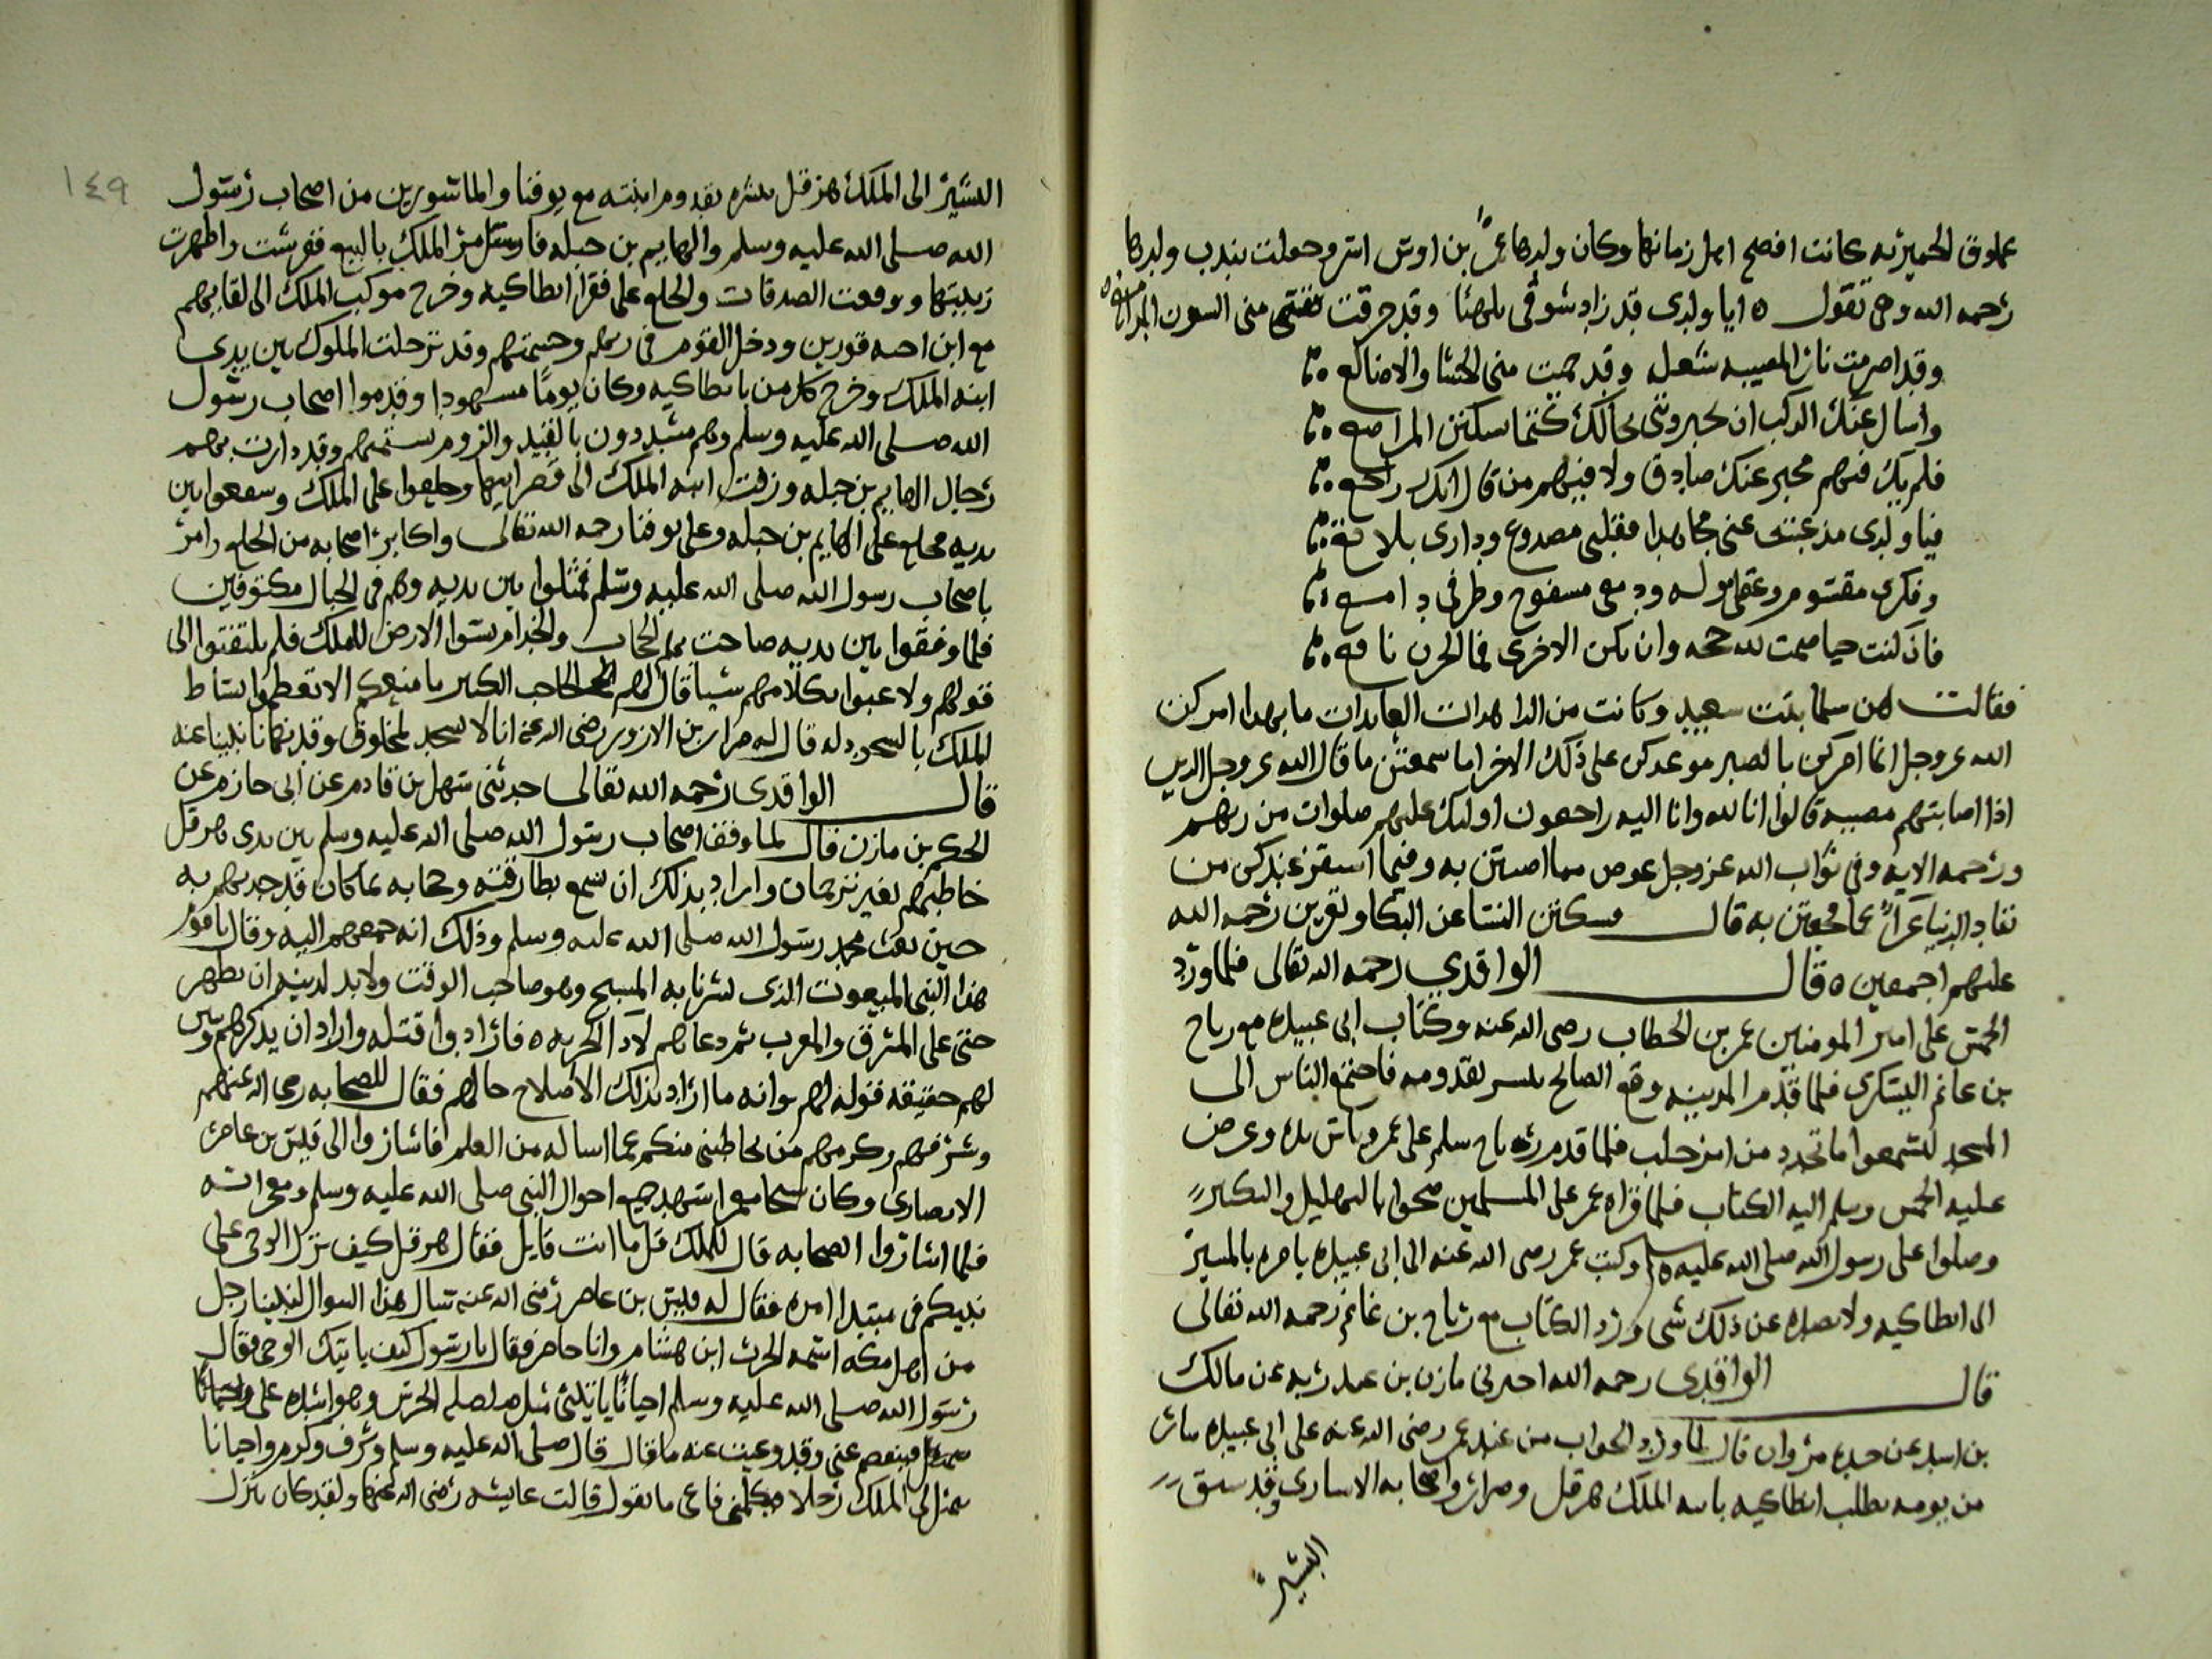 عملوق الحميريه كانت افصح اهل زمانها وكان ولدها عمرا بن اوس اسر وجعلت تندب ولدها
رحمه الله وهى تقول ٥ ايا ولدى قد زاد شوقى تلهفا وقد حرقت منى الشون المدامع ٥
وقد اضرمت نار المصيبه شعله وقد حميت منى الحشا والاضالع
واسال عنك الركب ان يخبروننى بحالك كيما تسكن المدامع
فلم يك فيهم مخبر عنك صادق ولا فيهم من قال انك راجع
فيا ولدى مذ غبت عنى مجاهدا فقلبى مصدوع ودارى بلاقع
وفكرى مقسوم وعقلى موله ودمعى مسفوح وطرفى دامع
فان كنت حيا صمت لله حجه وان تكن الاخرى فما الحزن نافع
فقالت لهن سلما بنت سعيد وكانت من الزاهدات العابدات ما بهذا امركن
الله عز وجل انما امركن بالصبر ووعدكن على ذلك الاجر اما سمعتن ما قال الله عز وجل الذين
اذا اصابتهم مصيبه قالوا انا لله وانا اليه راجعون اوليك عليهم صلوات من ربهم
ورحمه الايه وفى ثواب الله عز وجل عوض مما اصبتن به وفيما استقر عندكن من
نفاد الدنيا عزا عما فجعتن به قال فسكتن النسا عن البكا وتعزين رحمه الله
عليهم اجمعين ٥ قال الواقدى رحمه الله تعالى فلما ورد
الخمس على امير المومنين عمر بن الخطاب رضى الله عنه وكتاب ابى عبيده مع رباح
بن غانم اليشكرى فلما قدم المدينه وقع الصالح بقدومه فاجتمع الناس الى
المسجد ليسمعوا ما تجدد من امر حلب فلما قدم رباح سلم على عمر وباس يده وعرض
عليه الخمس وسلم اليه الكتاب فلما قراه عمر على المسلمين ضجوا بالتهليل والتكبير
وصلوا على رسول الله صلى الله عليه وسلم وكتب عمر رضى الله عنه الى ابى عبيده يامره بالمسير
الى انطاكيه ولا يصده عن ذلك شى ورد الكتاب مع رباح بن غانم رحمه الله تعالى
قال الواقدى رحمه الله اخبرنى مازن بن عبد ربه عن مالك
بن اسيد عن جده مروان قال لما ورد الجواب من عند عمر رضى الله عنه على ابى عبيده سار
من يومه يطلب انطاكيه بابنه الملك هرقل وضرار واصحابه الاسارى وقد سبق
البشير
١٤٩
البشير الى الملك هرقل بقدوم ابنته مع يوقنا والماسورين من اصحاب رسول
الله صلى الله عليه وسلم والهايم بن جبله فارسل امر الملك بالبيع ففرشت واظهرت
زينتها ووقعت الصدقات والخلع على فقرا انطاكيه وخرج موكب الملك الى لقايهم
مع ابن اخيه قورين ودخل القوم فى زيهم وحشمتهم وقد ترجلت الملوك بين يدى
ابنه الملك وخرج كل من بانطاكيه وكان يوما مشهودا وقدموا اصحاب رسول
الله صلى الله عليه وسلم وهم مشددون بالقيد والروم تشتمهم وقد دارت بهم
رجال الهايم بن جبله وزفت ابنه الملك الى قصر ابيها وطلعوا على الملك وسقعوا بين
يديه فخلع على الهايم بن جبله وعلى يوقنا رحمه الله تعالى واكابر اصحابه من الخلع وامر
باصحاب رسول الله صلى الله عليه وسلم فمثلوا بين يديه وهم فى الحبال مكتوفين
فلما وقفوا بين يديه صاحت بهم الحجاب والخدام بوسوا الارض للملك فلم يلتفتوا الى
قولهم ولا عبوا بكلامهم شيا قال لهم الحاجب الكبير ما منعكم الا تعظموا بساط
الملك بالسجود له قال له ضرار بن الازور رضى الله عنه انا لا نسجد لمخلوق وقد نهانا نبينا عنه
قال الواقدى رحمه الله تعالى حدثنى سهل بن قادم عن ابى حازم عن
الحكم بن مازن قال لما وقف اصحاب رسول الله صلى الله عليه وسلم بين يدى هرقل
خاطبهم بغير ترجمان واراد بذلك ان يسمع بطارقته وحجابه بما كان قد حدثهم به
حين بعث محمد رسول الله صلى الله عليه وسلم وذلك انه جمعهم اليه وقال يا قوم
هذا النبى المبعوث الذى بشرنا به المسيح وهو صاحب الوقت ولابد لدينه ان يظهر
حتى على المشرق والمغرب ثم دعاهم لادا الجزيه ٥ فارادوا قتله واراد ان يذكرهم ويبين
لهم حقيقه قوله لهم وانه ما اراد بذلك الا صلاح حالهم فقال للصحابه رضى الله عنهم
وشرفهم وكرمهم من يخاطبنى منكم عما اساله من العلم فاشاروا الى قيس بن عامر
الانصارى وكان شيخا معمرا شهد جميع احوال النبى صلى الله عليه وسلم ومعجزاته
فلما اشاروا الصحابه قال للملك قل ما انت قايل فقال هرقل كيف نزل الوحى على
نبيكم فى مبتدا امره فقال له قيس بن عامر رضى الله عنه سال هذا السوال لنبينا رجل
من اهل مكه اسمه الحرث ابن هشام وانا حاضر فقال يا رسول كيف ياتيك الوحى فقال
رسول الله صلى الله عليه وسلم احيانا ياتينى مثل صلصله الجرس وهو اشده على
فينفصم عنى وقد وعيت عنه ما قال قال صلى الله عليه وسلم وشرف وكرم واحيانا
يتمثل لى الملك رجلا فيكلمنى فاعى ما يقول قالت عايشه رضى الله عنها ولقد كان ينزل